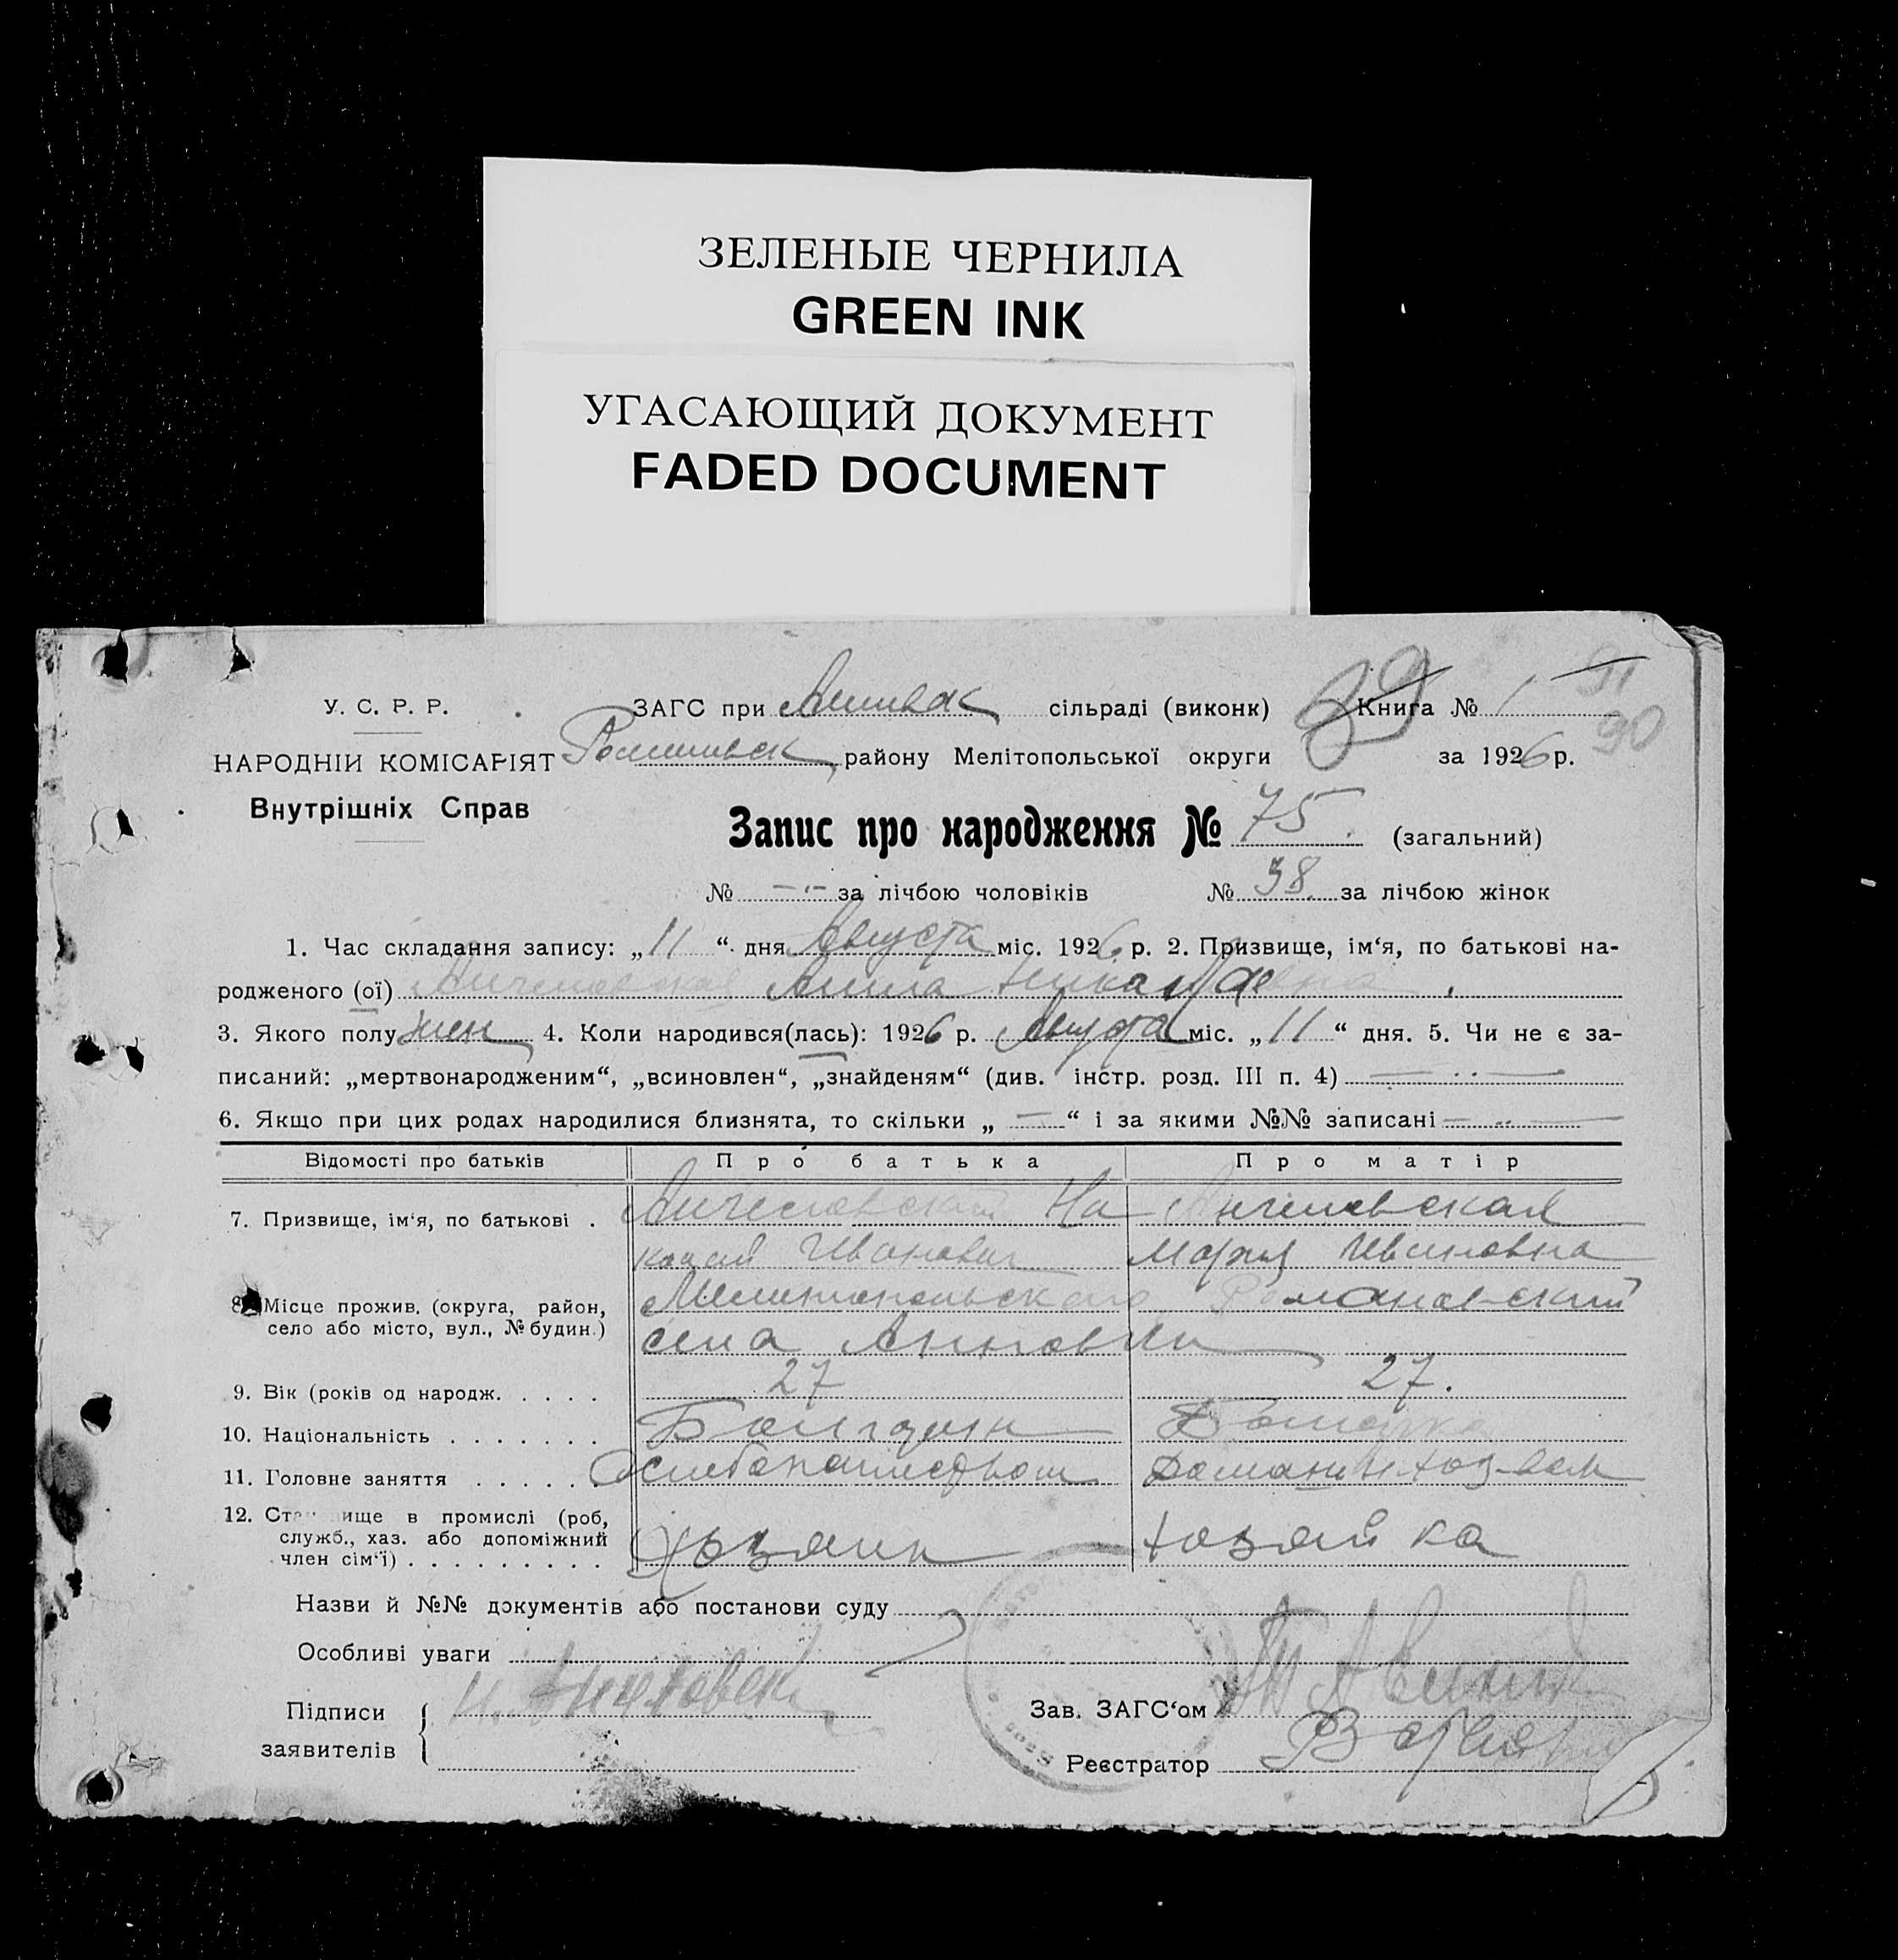 ЗЕЛЕНЫЕ ЧЕРНИЛА
GREEN INK
УГАСАЮЩИЙ ДОКУМЕНТ
FADED DOCUMENT
У. С. Р. Р.
НАРОДНІЙ КОМІСАРІЯТ
Внутрішніх Справ
ЗАГС при сільраді (виконк) 89 Книга № 1 91
району Мелітопольської округи за 1926 р. 90
Запис про народження № 75. (загальний)
№ —"— за лічбою чоловіків № 38 за лічбою жінок
1. Час складання запису: „11“ дня Августа міс. 1926 р. 2. Призвище, ім‘я, по батькові на-
родженого (ої) Анна Николаевна
3. Якого полу жен 4. Коли народився(лась): 1926 р. Августа міс. „11“ дня. 5. Чи не є за-
писаний: „мертвонародженим“, „всиновлен“, „знайденям“ (див. інстр. розд. III п. 4) — " —
6. Якщо при цих родах народилися близнята, то скільки „—“ і за якими №№ записані — " —
Відомості про батьків Про батька Про матір
7. Призвище, ім‘я, по батькові . Ни
Иванович Мария Ивановна
8. Місце прожив. (округа, район, Мелитопольского Романовский
село або місто, вул., № будин.) села Анновки
9. Вік (років од народж. . . . . 27 27.
10. Національність . . . . . . . Болгарин Болгарка
11. Головне заняття . . . . . .
12. Становище в промислі (роб,
служб., хаз. або допоміжний Хозяин хозяйка
член сім‘ї) . . . . . . . . .
Назви й №№ документів або постанови суду
Особливі уваги
Підписи
заявителів
Зав. ЗАГС‘ом
Реєстратор